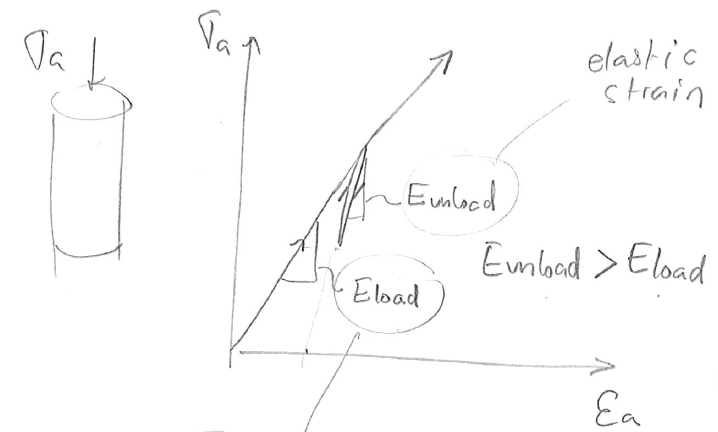 σa
σa
elastic
strain
Eunload
Eunload > Eload
Eload
εa